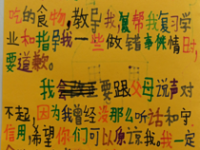 吃的食物,教导我,还帮我复习学
业和指导我一些做错事情时,
要道歉。
我 要跟父母说声对
不起,因为我曾经没那么听话和守
信用希望你们可以原谅我。我一定